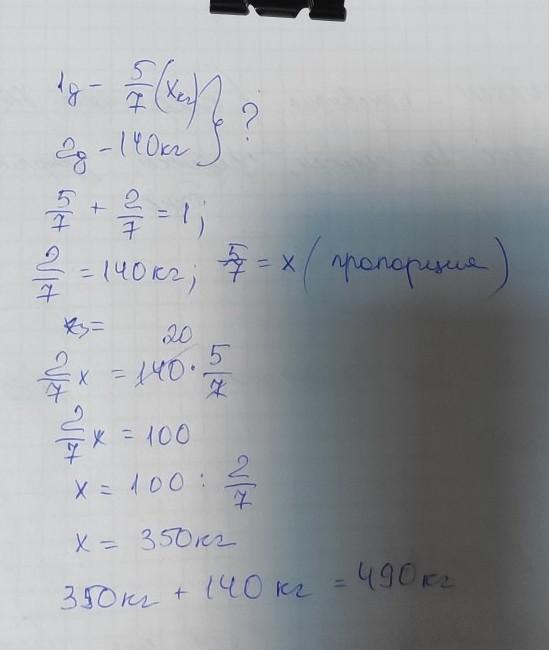 1д - 5/7 (x кг) } ?
2д - 140кг
5/7 + 2/7 = 1;
2/7 = 140кг; 5/7 = x (пропорция)
20
2/7 x = 140 · 5/7
2/7 x = 100
x = 100 : 2/7
x = 350кг
350кг + 140кг = 490кг